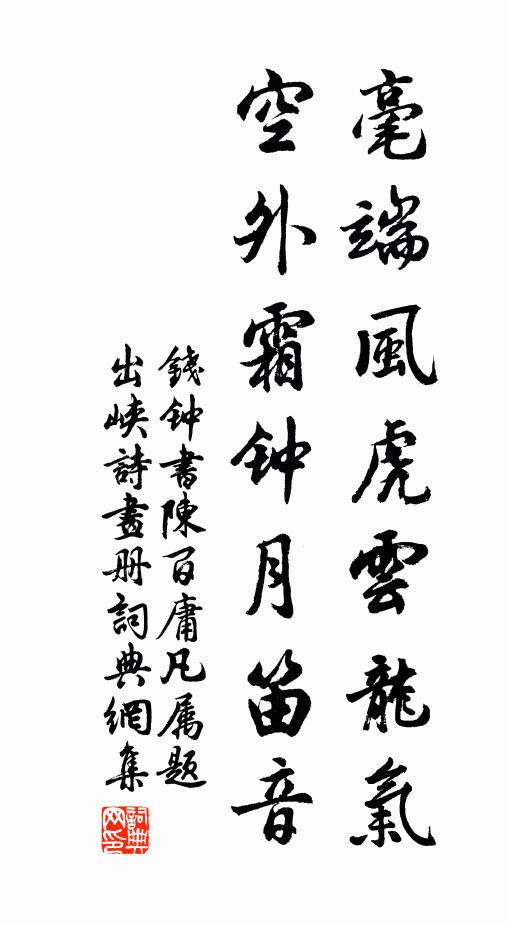 毫端風虎雲龍氣
空外霜钟月笛音
錢钟書陳百庸凡属題
出峽詩畫册詞典網集
詞典
网印